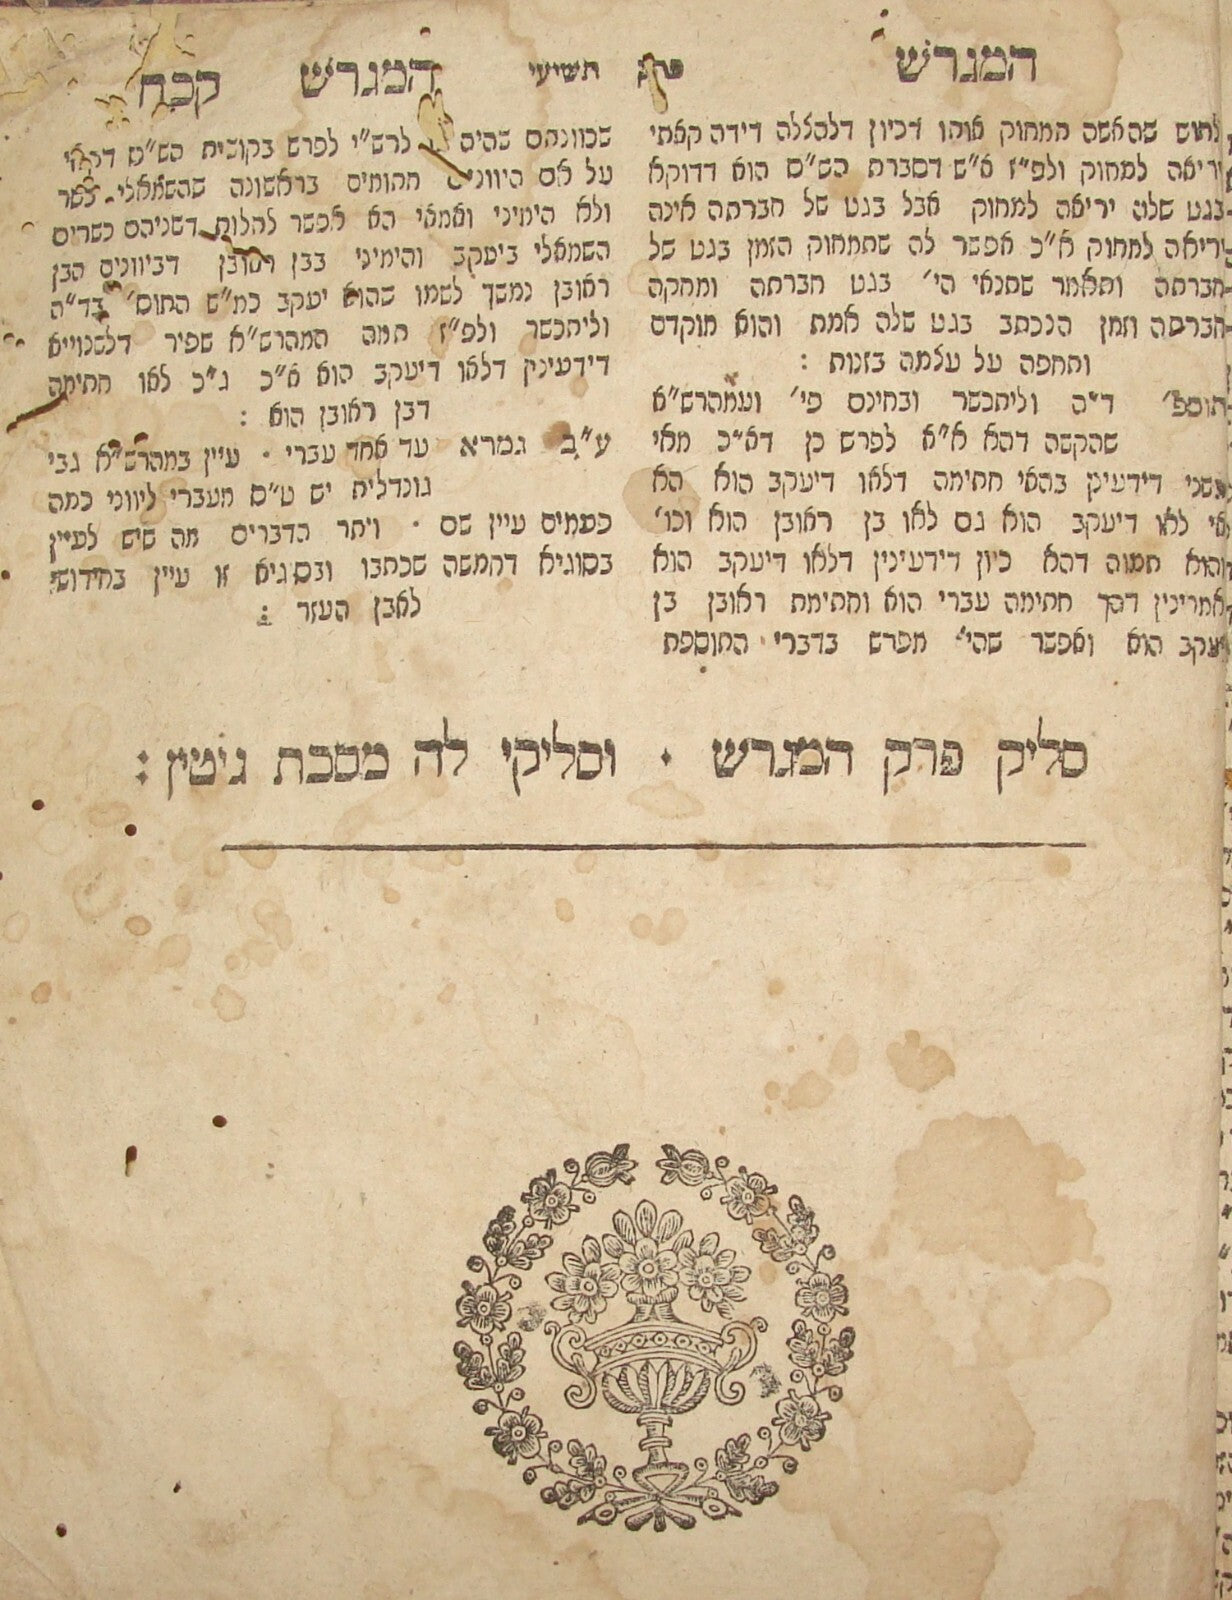 המגרש פרק תשיעי המגרש קכח
לחוש שהאשה תמחוק אותו דכיון דלהללה דידה קאתי
יריאה למחוק ולפ״ז א״ש דסברת הש״ס הוא דדוקא
בגט שלה יריאה למחוק אבל בגט של חברתה אינה
יריאה למחוק א״כ אפשר לה שתמחוק הזמן בגט של
חברתה ותאמר שתנאי הי׳ בגט חברתה ומחקה
חברתה וזמן הנכתב בגט שלה אמת והוא מוקדם
ותחפה על עלמה בזנות :
תוספ׳ ד״ה וליתכשר ובחינם פי׳ ועמהרש״א
שהקשה דהא א״א לפרש כן דא״כ מאי
משני דידעינן בהאי חתימה דלאו דיעקב הוא הא
אי לאו דיעקב הוא גם לאו בן ראובן הוא וכו׳
והוא תמוה דהא כיון דידעינין דלאו דיעקב הוא
אמרינין דסך חתימה עברי הוא וחתימת ראובן בן
יעקב הוא ואפשר שהי׳ מפרש בדברי התוספת
שכוונתם שהיה לרש״י לפרש בקושית הש״ס
על אם היוונים חתומים בראשונה שהשמאלי כשר
ולא הימיני ואמאי הא אפשר להלות דשניהם כשרים
השמאלי ביעקב והימיני בבן ראובן דביוונים הבן
ראובן נמשך לשמו שהוא יעקב כמ״ש התוס׳ בד״ה
וליתכשר ולפ״ז תמה המהרש״א שפיר דלשנוייא
דידעינין דלאו דיעקב הוא א״כ ג״כ לאו חתימה
דבן ראובן הוא :
ע״ב גמרא עד אחד עברי . עיין במהרש״א גבי
גונדלית יש ט״ס מעברי ליווני כמה
פעמים עיין שם . ויתר הדברים מה שיש לעיין
בסוגיא דחמשה שכתבו ובסגיא זו עיין בחידושי
לאבן העזר :
סליק פרק המגרש . וסליקי לה מסכת גיטין :